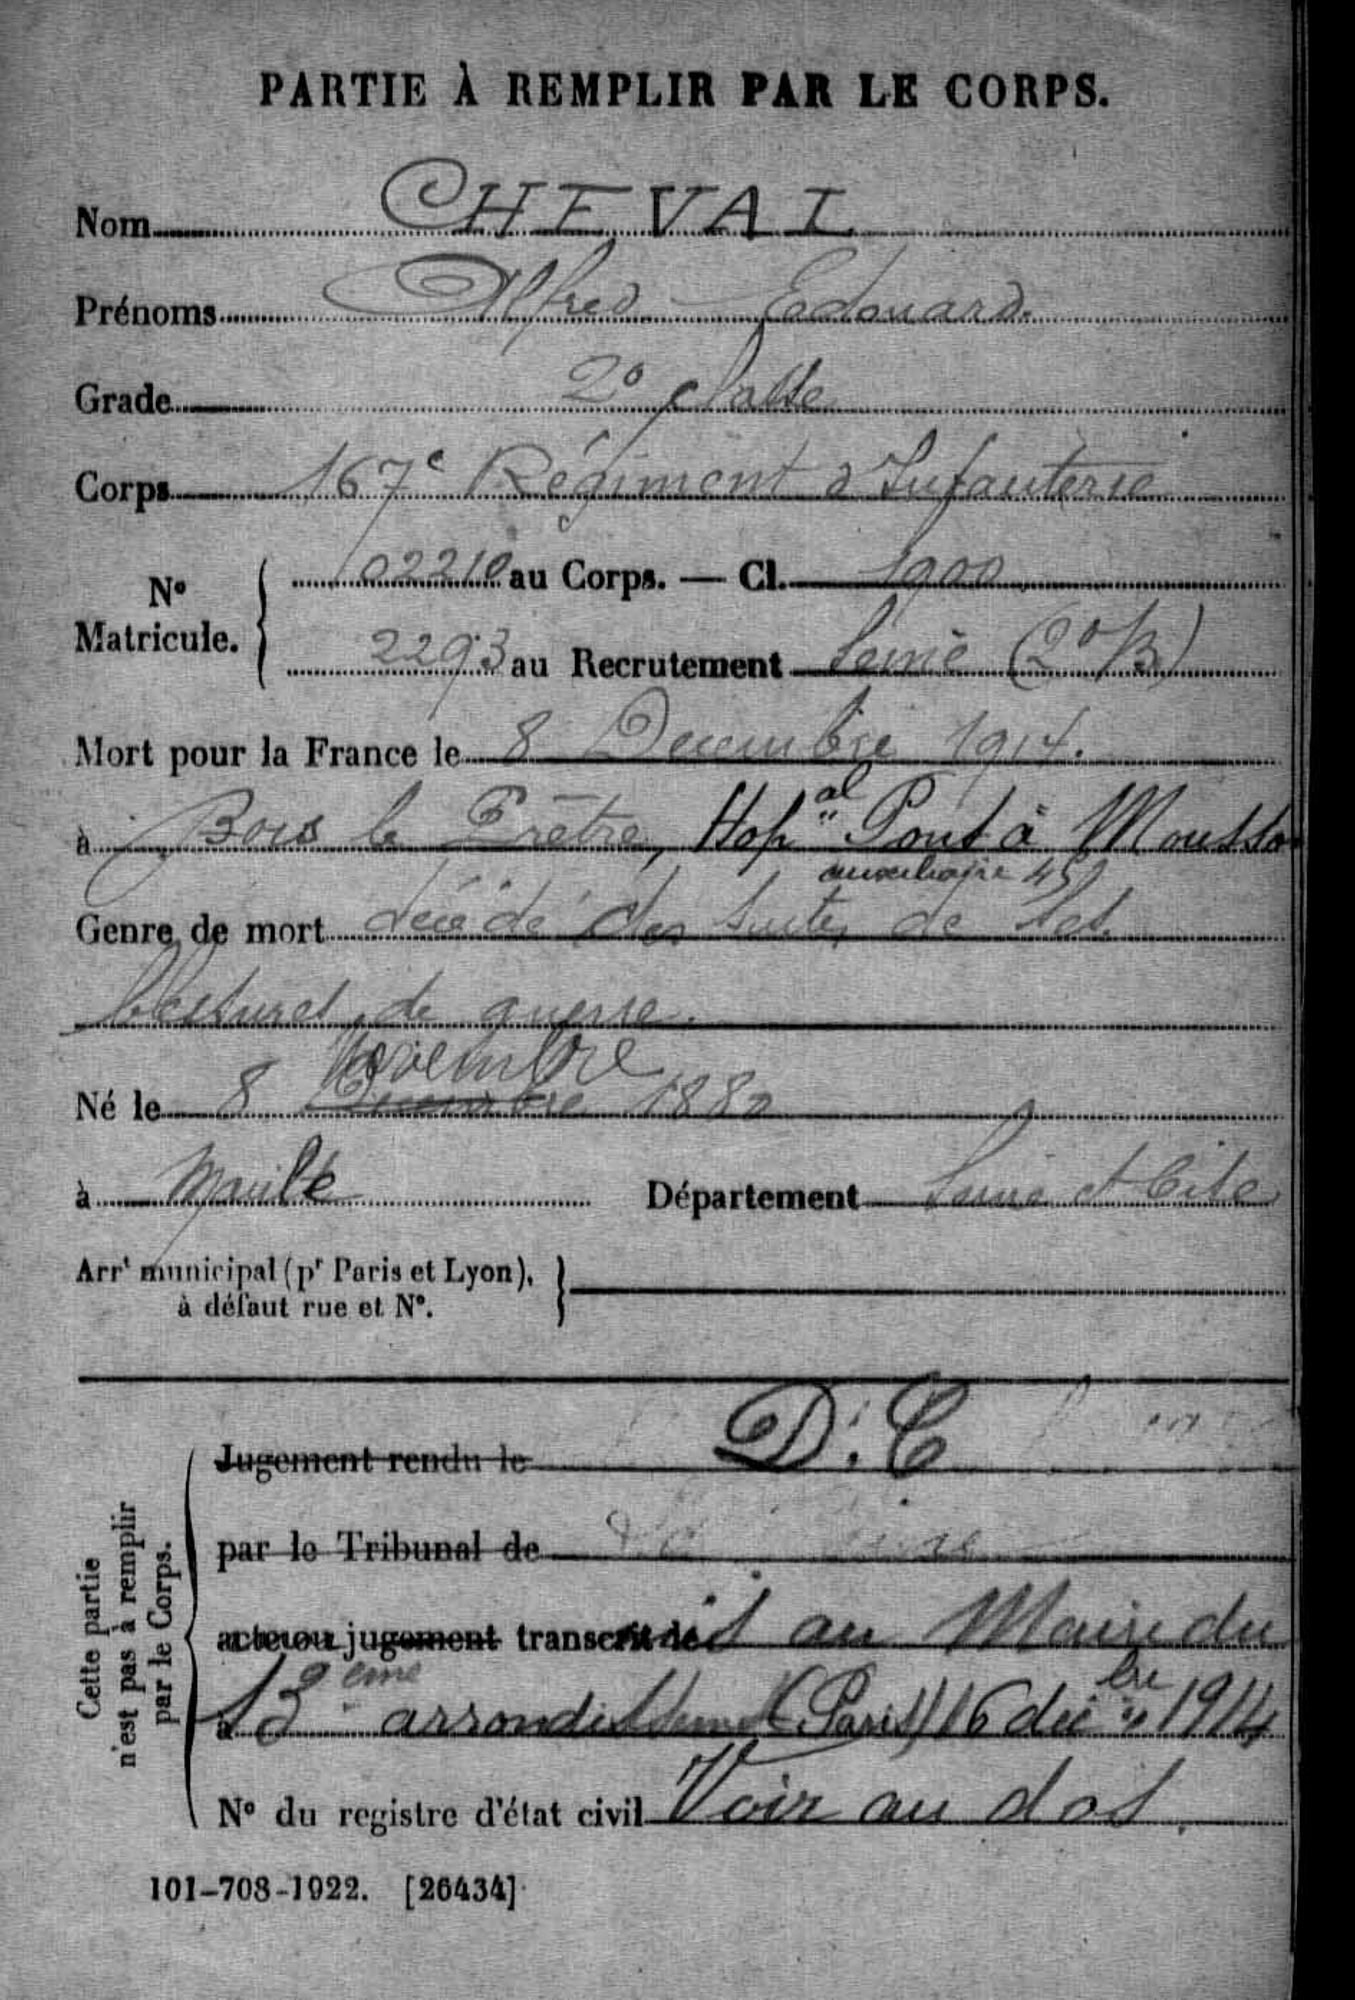 PARTIE À REMPLIR PAR LE CORPS.
Nom CHEVAL
Prénoms Alfred Edouard.
Grade 2e classe
Corps 167e Régiment d'Infanterie
No Matricule. 02210 au Corps. — Cl. 1900
2293 au Recrutement Seine (2e B)
Mort pour la France le 8 Decembre 1914.
à Bois le Prêtre, Hop al Pont à Mousson
auxiliaire 452
Genre de mort décédé des suites de ses
blessures de guerre.
Novembre
Né le 8 Decembre 1880
à Département Seine et Oise
Arrt municipal (pr Paris et Lyon),
à défaut rue et No.
D. C
Jugement rendu le
par le Tribunal de
acte ou jugement transcrit le avis au Maire du
à 13ème arrondissement (Paris) 16 décbre 1914
No du registre d'état civil Voir au dos.
Cette partie
n'est pas à remplir
par le Corps.
101-708-1922. [26434]